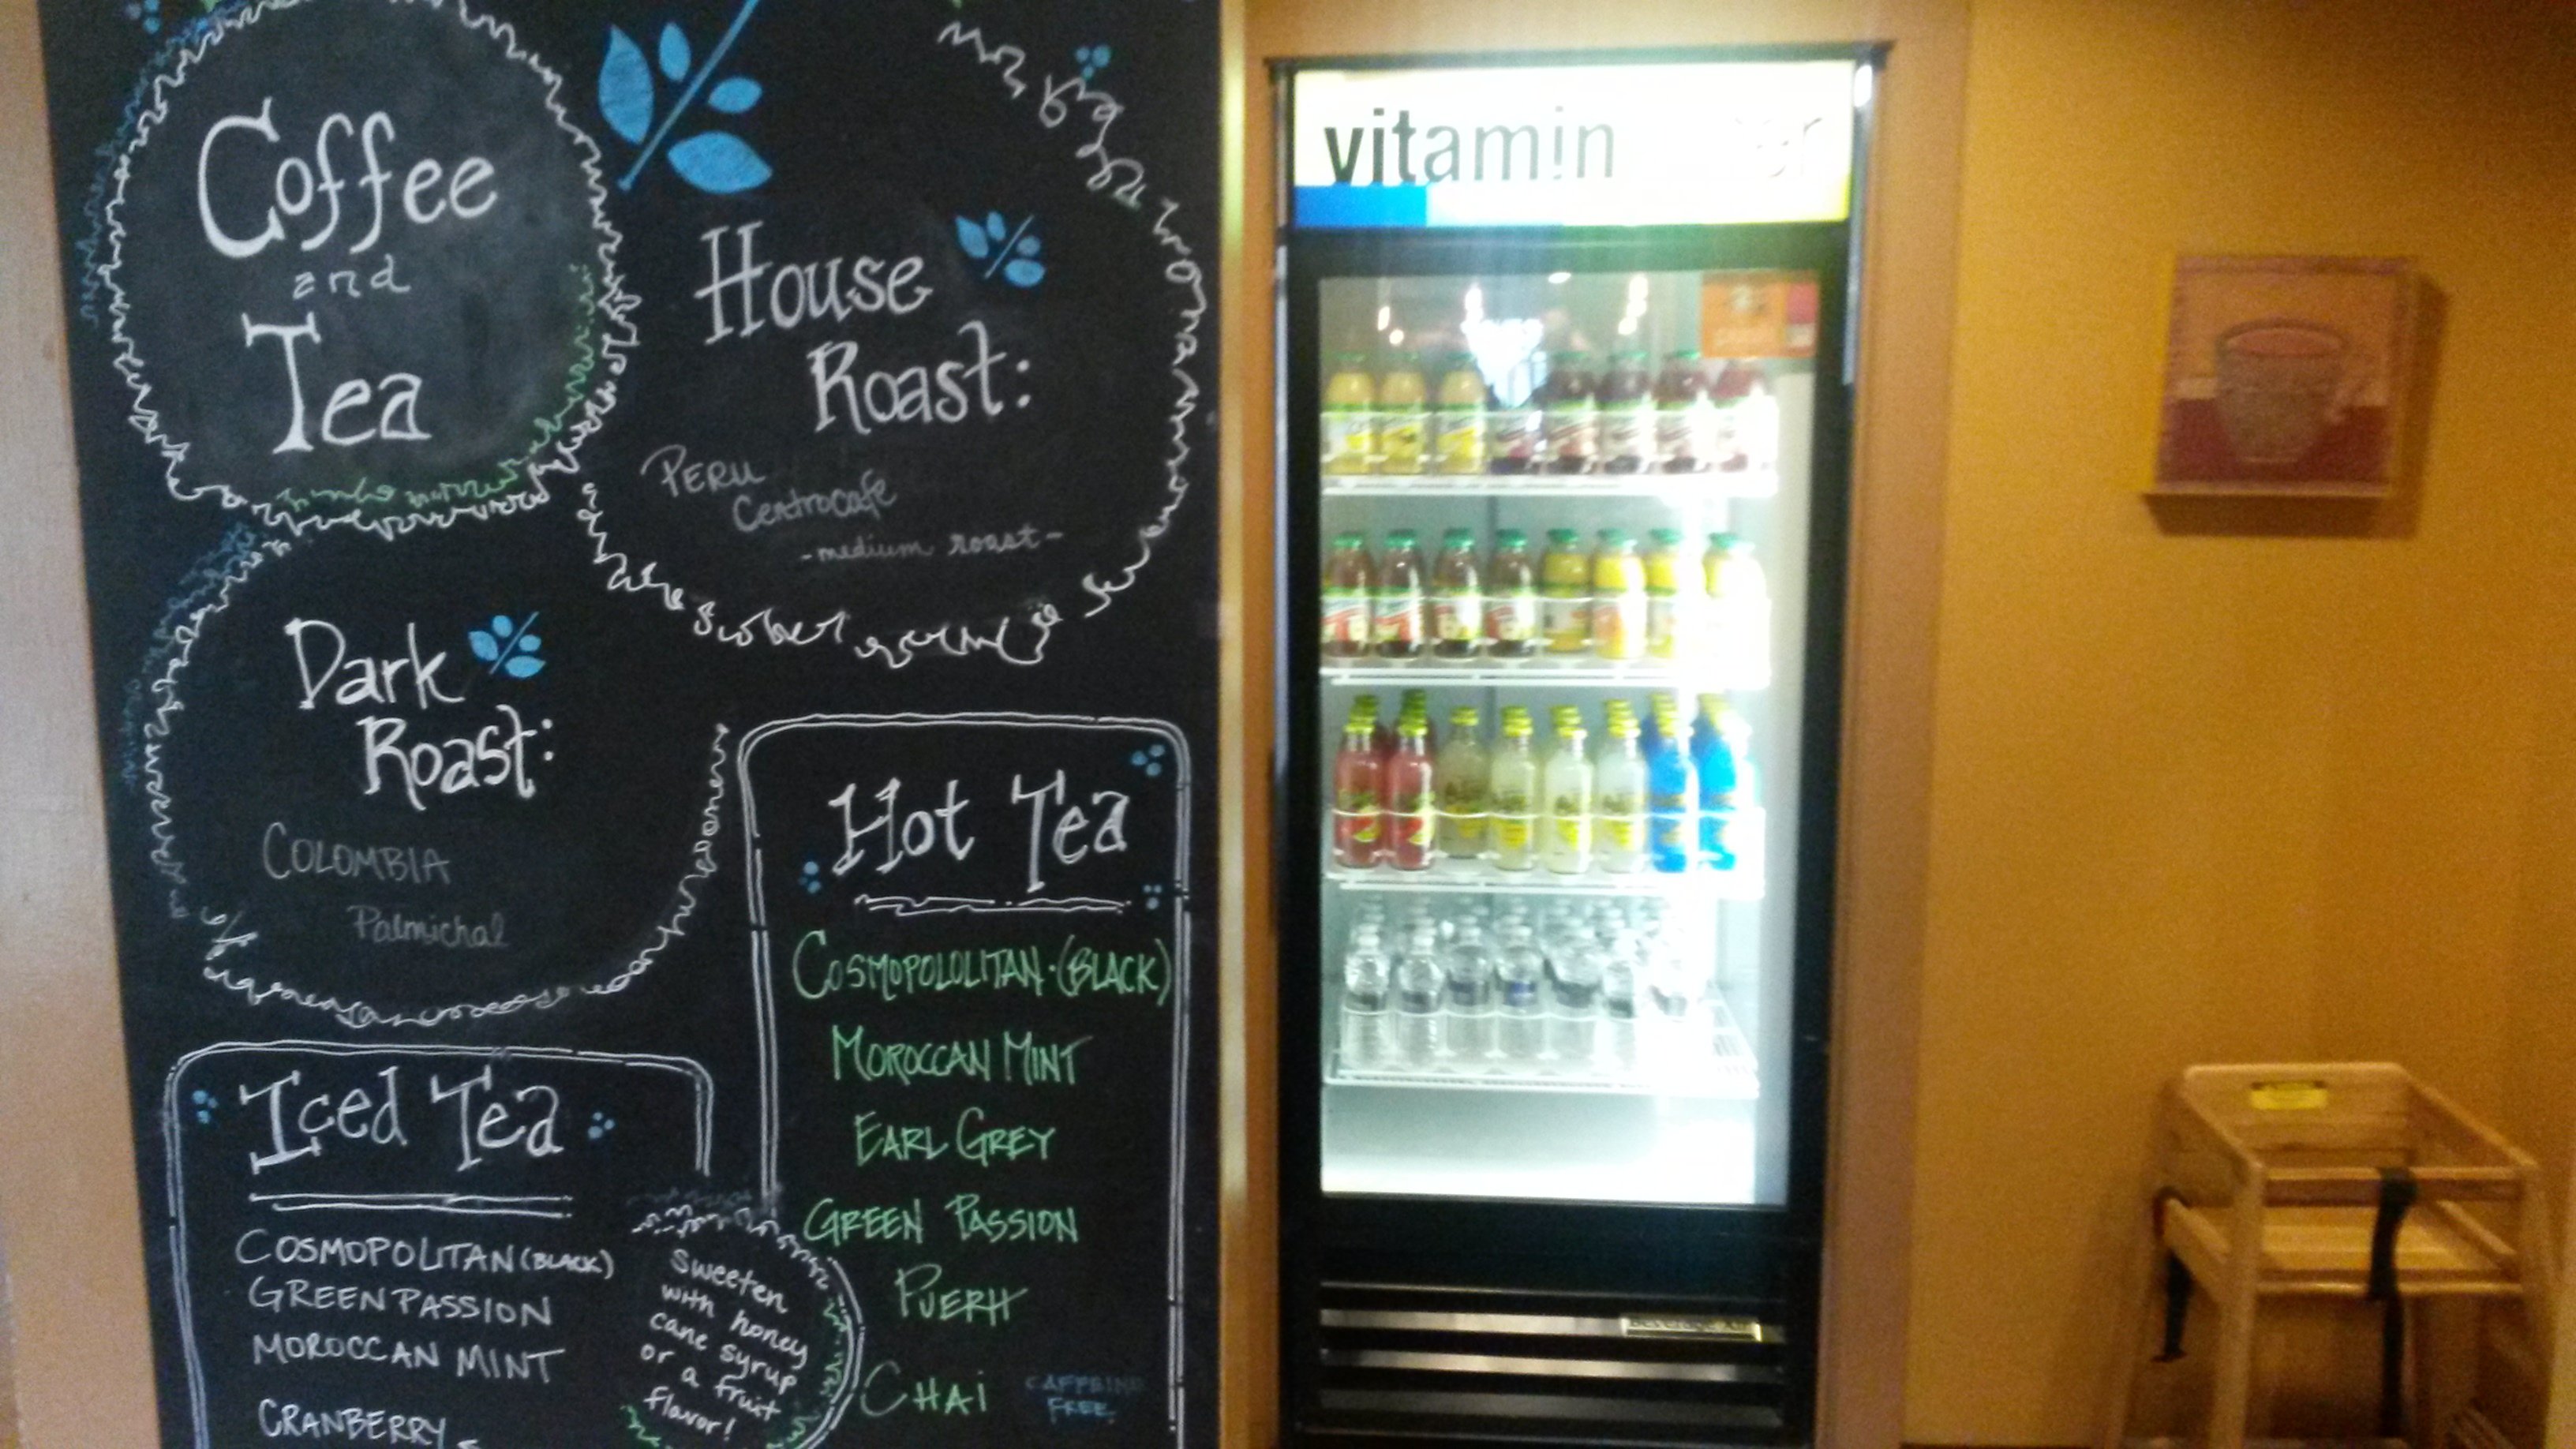 Coffee
and
Tea
House
Roast:
PERU
Centrocafe
-medium roast-
Dark
Roast:
COLOMBIA
Palmichal
Hot Tea
COSMOPOLOLITAN·(BLACK)
MOROCCAN MINT
EARL GREY
GREEN PASSION
PUERH
CHAI
CAFFEINE
FREE
Iced Tea
COSMOPOLITAN (BLACK)
GREEN PASSION
MOROCCAN MINT
CRANBERRY
Sweeten
with honey
cane syrup
or a fruit
flavor!
vitamin
Beverage-Air